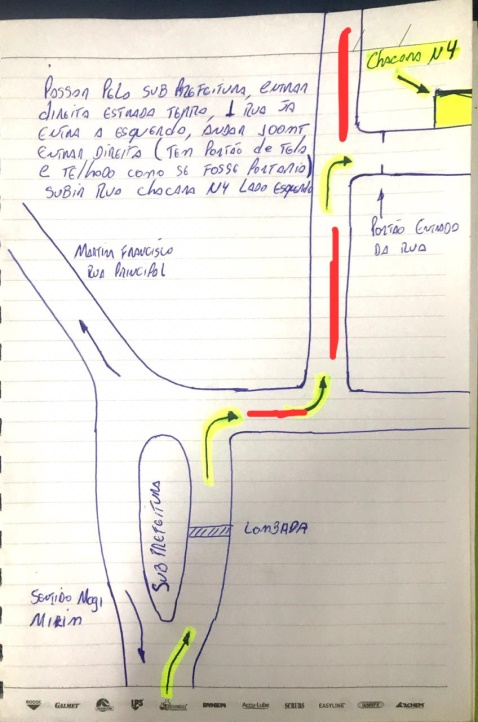 CHACARA Nº4
PASSAR PELO SUB PREFEITURA, ENTRAR
DIREITA ESTRADA TERRO, 1 RUA JA
ENTRA A ESQUERDO, ANDAR 100MT
ENTRAR DIREITA (TEM PORTÃO de TELA
E TElHADO COMO SE FOSSE PORTARIA)
SUBIR RUA CHACARA Nº4 LADO ESQUERDO
PORTÃO ENTRADO
DA RUA
MARTIM FRANCISCO
RUA PRINCIPAL
SUB PREFEITURA
LOMBADA
SENTIDO MOGI
MIRIM
GALMET
LPS
Accu-Lube
SCRUBS
EASYLINE